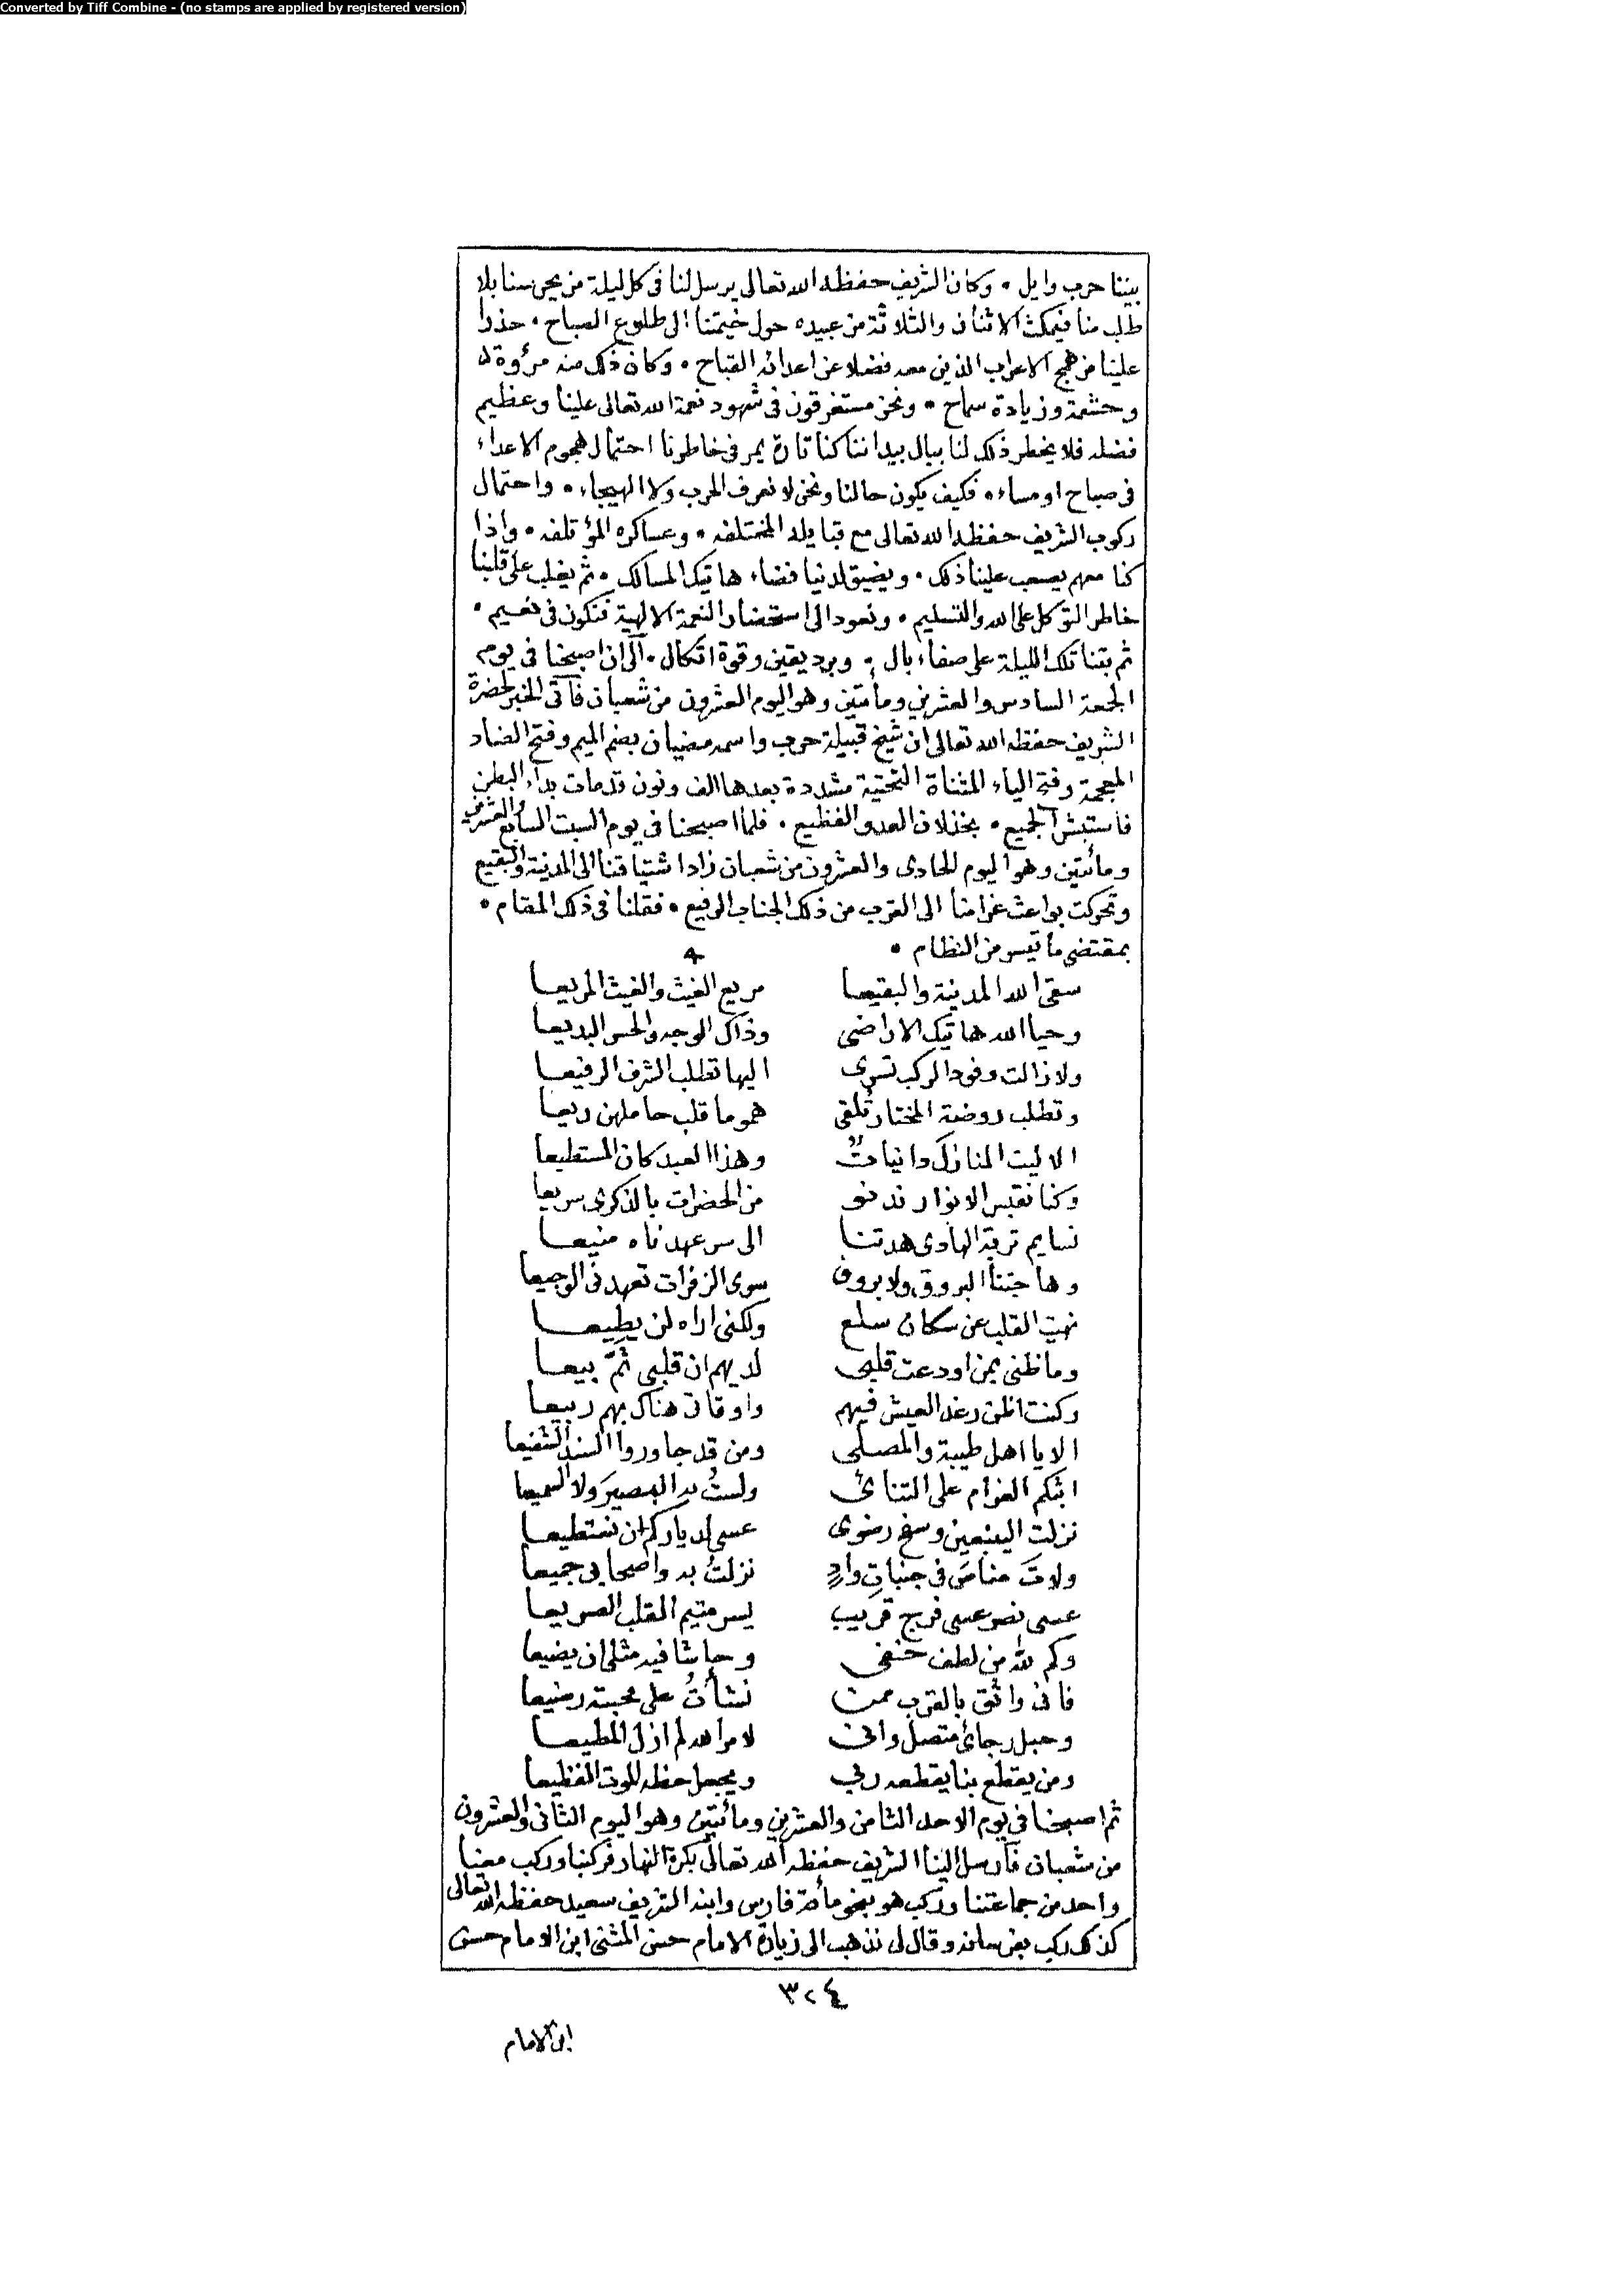 Converted by Tiff Combine - (no stamps are applied by registered version)
بيننا حرب وايل • وكان الشريف حفظه الله تعالى يرسل لنا فى كل ليلة من يحرسنا بلا
طلب منا فيمكث الاثنان والثلاثة من عبيده حول خيمتنا الى طلوع الصباح • حذرا
علينا من همج الاعراب الذين معه فضلا عن اعدائه القباح • وكان ذلك منه مرؤة له
وحشمة وزيادة سماح • ونحن مستغرقون فى شهود نعمة الله تعالى علينا وعظيم
فضله فلا يخطر ذلك لنا ببال بيد اننا كنا تارة يمر فى خاطرنا احتمال هجوم الاعداء
فى صباح او مساء • فكيف يكون حالنا ونحن لا نعرف الحرب ولا الهيجاء • واحتمال
ركوب الشريف حفظه الله تعالى مع قبايله المختلفه • وعساكره المؤتلفه • واذا
كنا معهم يصعب علينا ذلك • ويضيق لدنيا فضاء هاتيك المسالك • ثم يغلب على قلبنا
خاطر التوكل على الله والتسليم • ونعود الى استحضار النعمة الالهية فنكون فى نعيم •
ثم بتنا تلك الليلة على صفاء بال • وبرد يقين وقوة اتكال • الى ان اصبحنا فى يوم
الجمعة السادس والعشرين ومأتين وهو اليوم العشرون من شعبان فأتى الخبر لحضرة
الشريف حفظه الله تعالى ان شيخ قبيلة حرب واسمه مضيان بضم الميم وفتح الضاد
المعجمة وفتح الياء المثناة التحتية مشددة بعدها الف ونون قد مات بداء البطن
فاستبش الجميع • بخذلان العدو الفظيع • فلما اصبحنا فى يوم السبت السابع والعشرين
ومائتين وهو اليوم الحادى والعشرون من شعبان زاد اشتياقنا الى المدينة والبقيع
وتحركت بواعث غرامنا الى القرب من ذلك الجناب الرفيع • فقلنا فى ذلك المقام •
بمقتضى ما تيسر من النظام •
سقى الله المدينة والبقيعا مريع الغيث والغيث المريعا
وحيا الله هاتيك الاراضى وذاك الوجه والحسن البديعا
ولا زالت وفود الركب تسرى اليها تطلب الشرف الرفيعا
وتطلب روضة المختار تلقى هموما قلب حاملهن ريعا
الا ليت المنازل دانياتٌ وهذا العبد كان المستطيعا
وكنا نقبس الانوار ندنو من الحضرات بالذكرى سريعا
نسايم تربة الهادى هدتنا الى سر عهدناه منيعا
وهاجتنا البروق ولا بروق سوى الزفرات تعهد فى الوجيعا
نهيت القلب عن سكان سلع ولكنى اراه لن يطيعا
وما ظنى بمن اودعت قلبى لديهم ان قلبى ثمّ بيعا
وكنت اظن رغد العيش فيهم واوقاتى هناك بهم ربيعا
الا يا اهل طيبة والمصلى ومن قد جاوروا السند الشفيعا
ابثكم الغرام على التنائى ولستُ به البصيرَ ولا السميعا
نزلت الينبعين وسفح رضوى عسى لدياركم ان نستطيعا
ولاتَ مناصَ فى جنباتِ وادٍ نزلتُ به واصحابى جميعا
عسى نصر عسى فرج قريب يسر متيم القلب الصريعا
وكم لله من لطف خفى وحاشا فيه مثلى ان يضيعا
فانى واثق بالقرب ممن نشأتُ على محبته رضيعا
وحبل رجائى متصل وانى لامر الله لم ازل المطيعا
ومن يقطع بنا يقطعه ربى ويجعل حظه الموت الفظيعا
ثم اصبحنا فى يوم الاحد الثامن والعشرين ومائتين وهو اليوم الثانى والعشرون
من شعبان فأرسل الينا الشريف حفظه الله تعالى بكرة النهار فركبنا وركب معنا
واحد من جماعتنا وركب هو بنحو مأة فارس وابنه الشريف سعيد حفظه الله تعالى
كذلك ركب بفرسانه وقال لى نذهب الى زيارة الامام حسن المثنى ابن الامام حسن
٣٢٤
ابن الامام